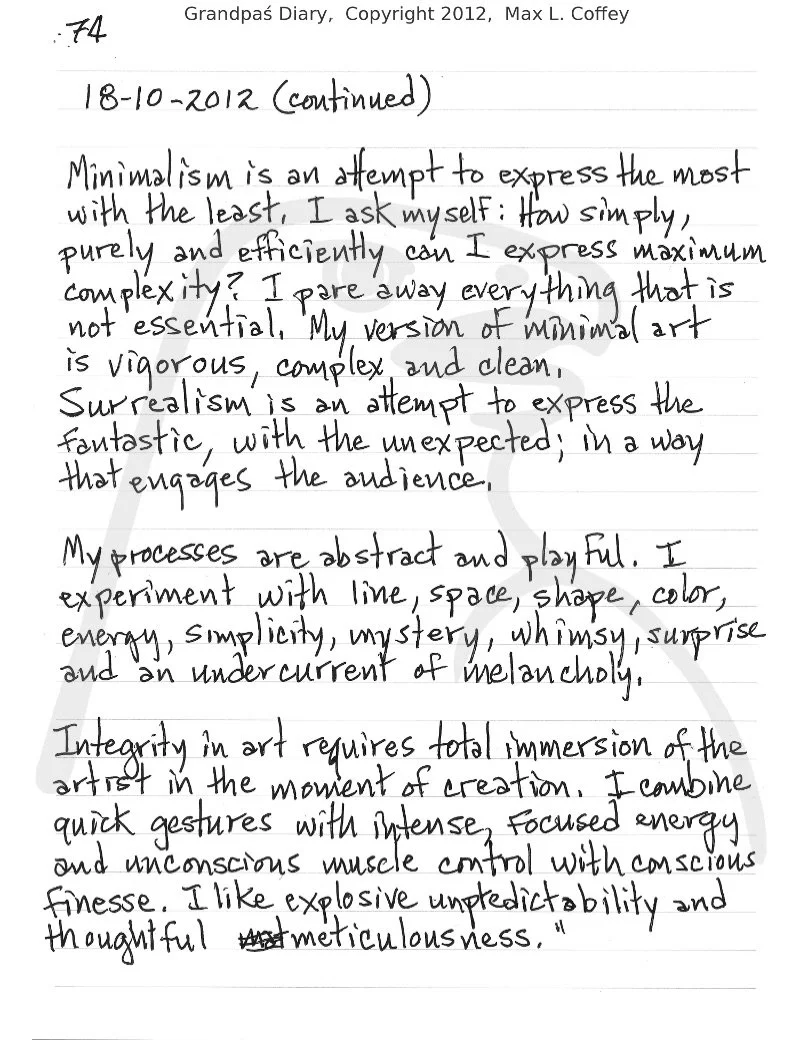 Grandpaś Diary, Copyright 2012, Max L. Coffey
74
18-10-2012 (continued)
Minimalism is an attempt to express the most
with the least. I ask myself: How simply,
purely and efficiently can I express maximum
complexity? I pare away everything that is
not essential. My version of minimal art
is vigorous, complex and clean.
Surrealism is an attempt to express the
fantastic, with the unexpected; in a way
that engages the audience.
My processes are abstract and playful. I
experiment with line, space, shape, color,
energy, simplicity, mystery, whimsy, surprise
and an undercurrent of melancholy.
Integrity in art requires total immersion of the
artist in the moment of creation. I combine
quick gestures with intense, focused energy
and unconscious muscle control with conscious
finesse. I like explosive unpredictability and
thoughtful meticulousness."